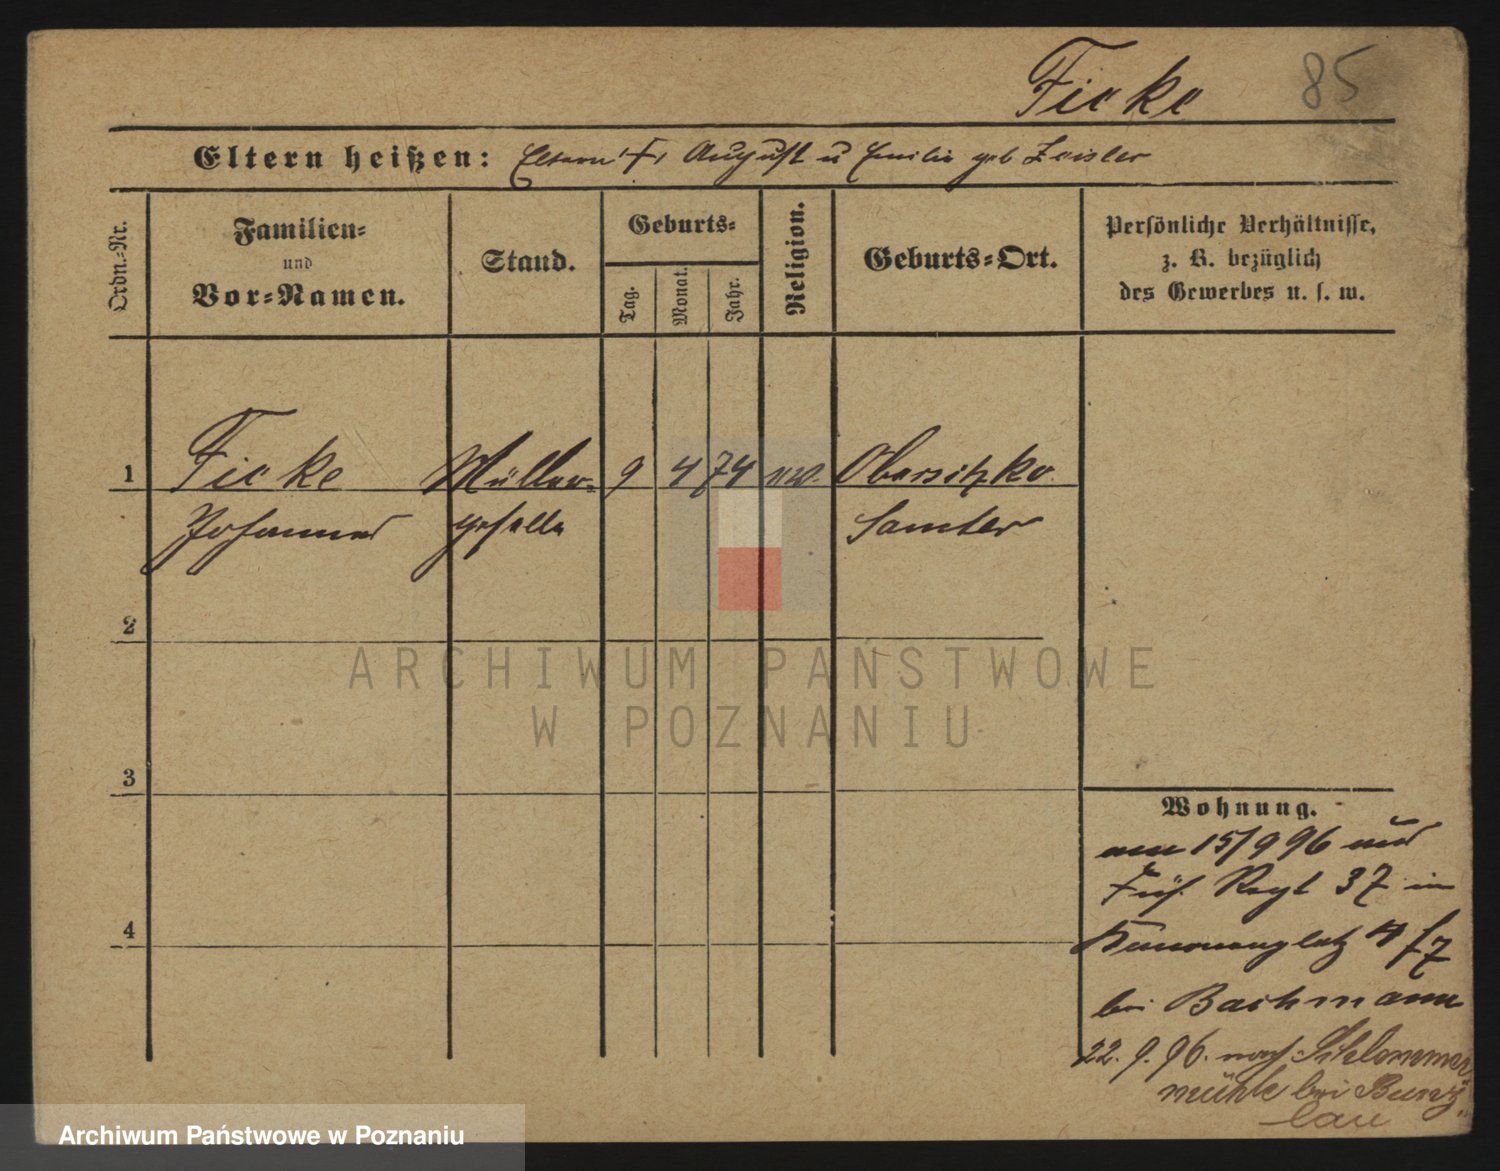 Ficke 85
Eltern heißen: Eltern † August u Emilie geb Zeisler
Ordn.-Nr.
Familien-
und
Vor-Namen.
Stand.
Geburts-
Tag.
Monat.
Jahr.
Religion.
Geburts-Ort.
Persönliche Verhältnisse,
z. B. bezüglich
des Gewerbes u. s. w.
1 Ficke Müller- 9 4 74 ev. Obersitzko
Johannes geselle Samter
2
3
4
Wohnung.
15/9 96
Füs. Regt 37 in
Kanonenplatz 4
bei Bachmann
22. 9. 96. nach Schlemmer
mühle bei Bunz
lau
ARCHIWUM PAŃSTWOWE
W POZNANIU
Archiwum Państwowe w Poznaniu